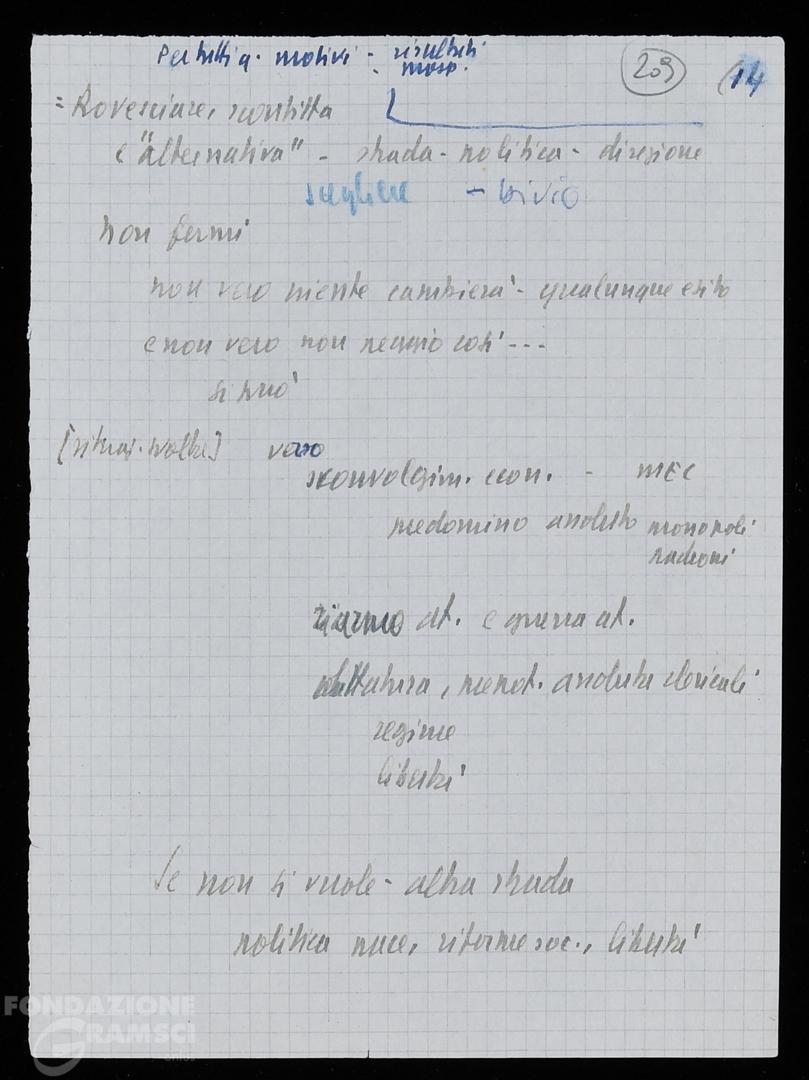 Per tutti q. motivi - risultati
prosp.
209
(14
= Rovesciare, sconfitta
e "alternativa" - strada - politica - direzione
scegliere - bivio
non fermi
non vero niente cambierà - qualunque esito
e non vero non peggio così ---
si può
[situaz. svolte] verso
sconvolgim. econ. - MEC
predominio assoluto monopoli
padroni
riarmo at. e guerra at.
dittatura, prepot. assoluta clericali
regime
libertà
Se non si vuole - altra strada
politica pace, riforme soc., libertà
FONDAZIONE
GRAMSCI
onlus